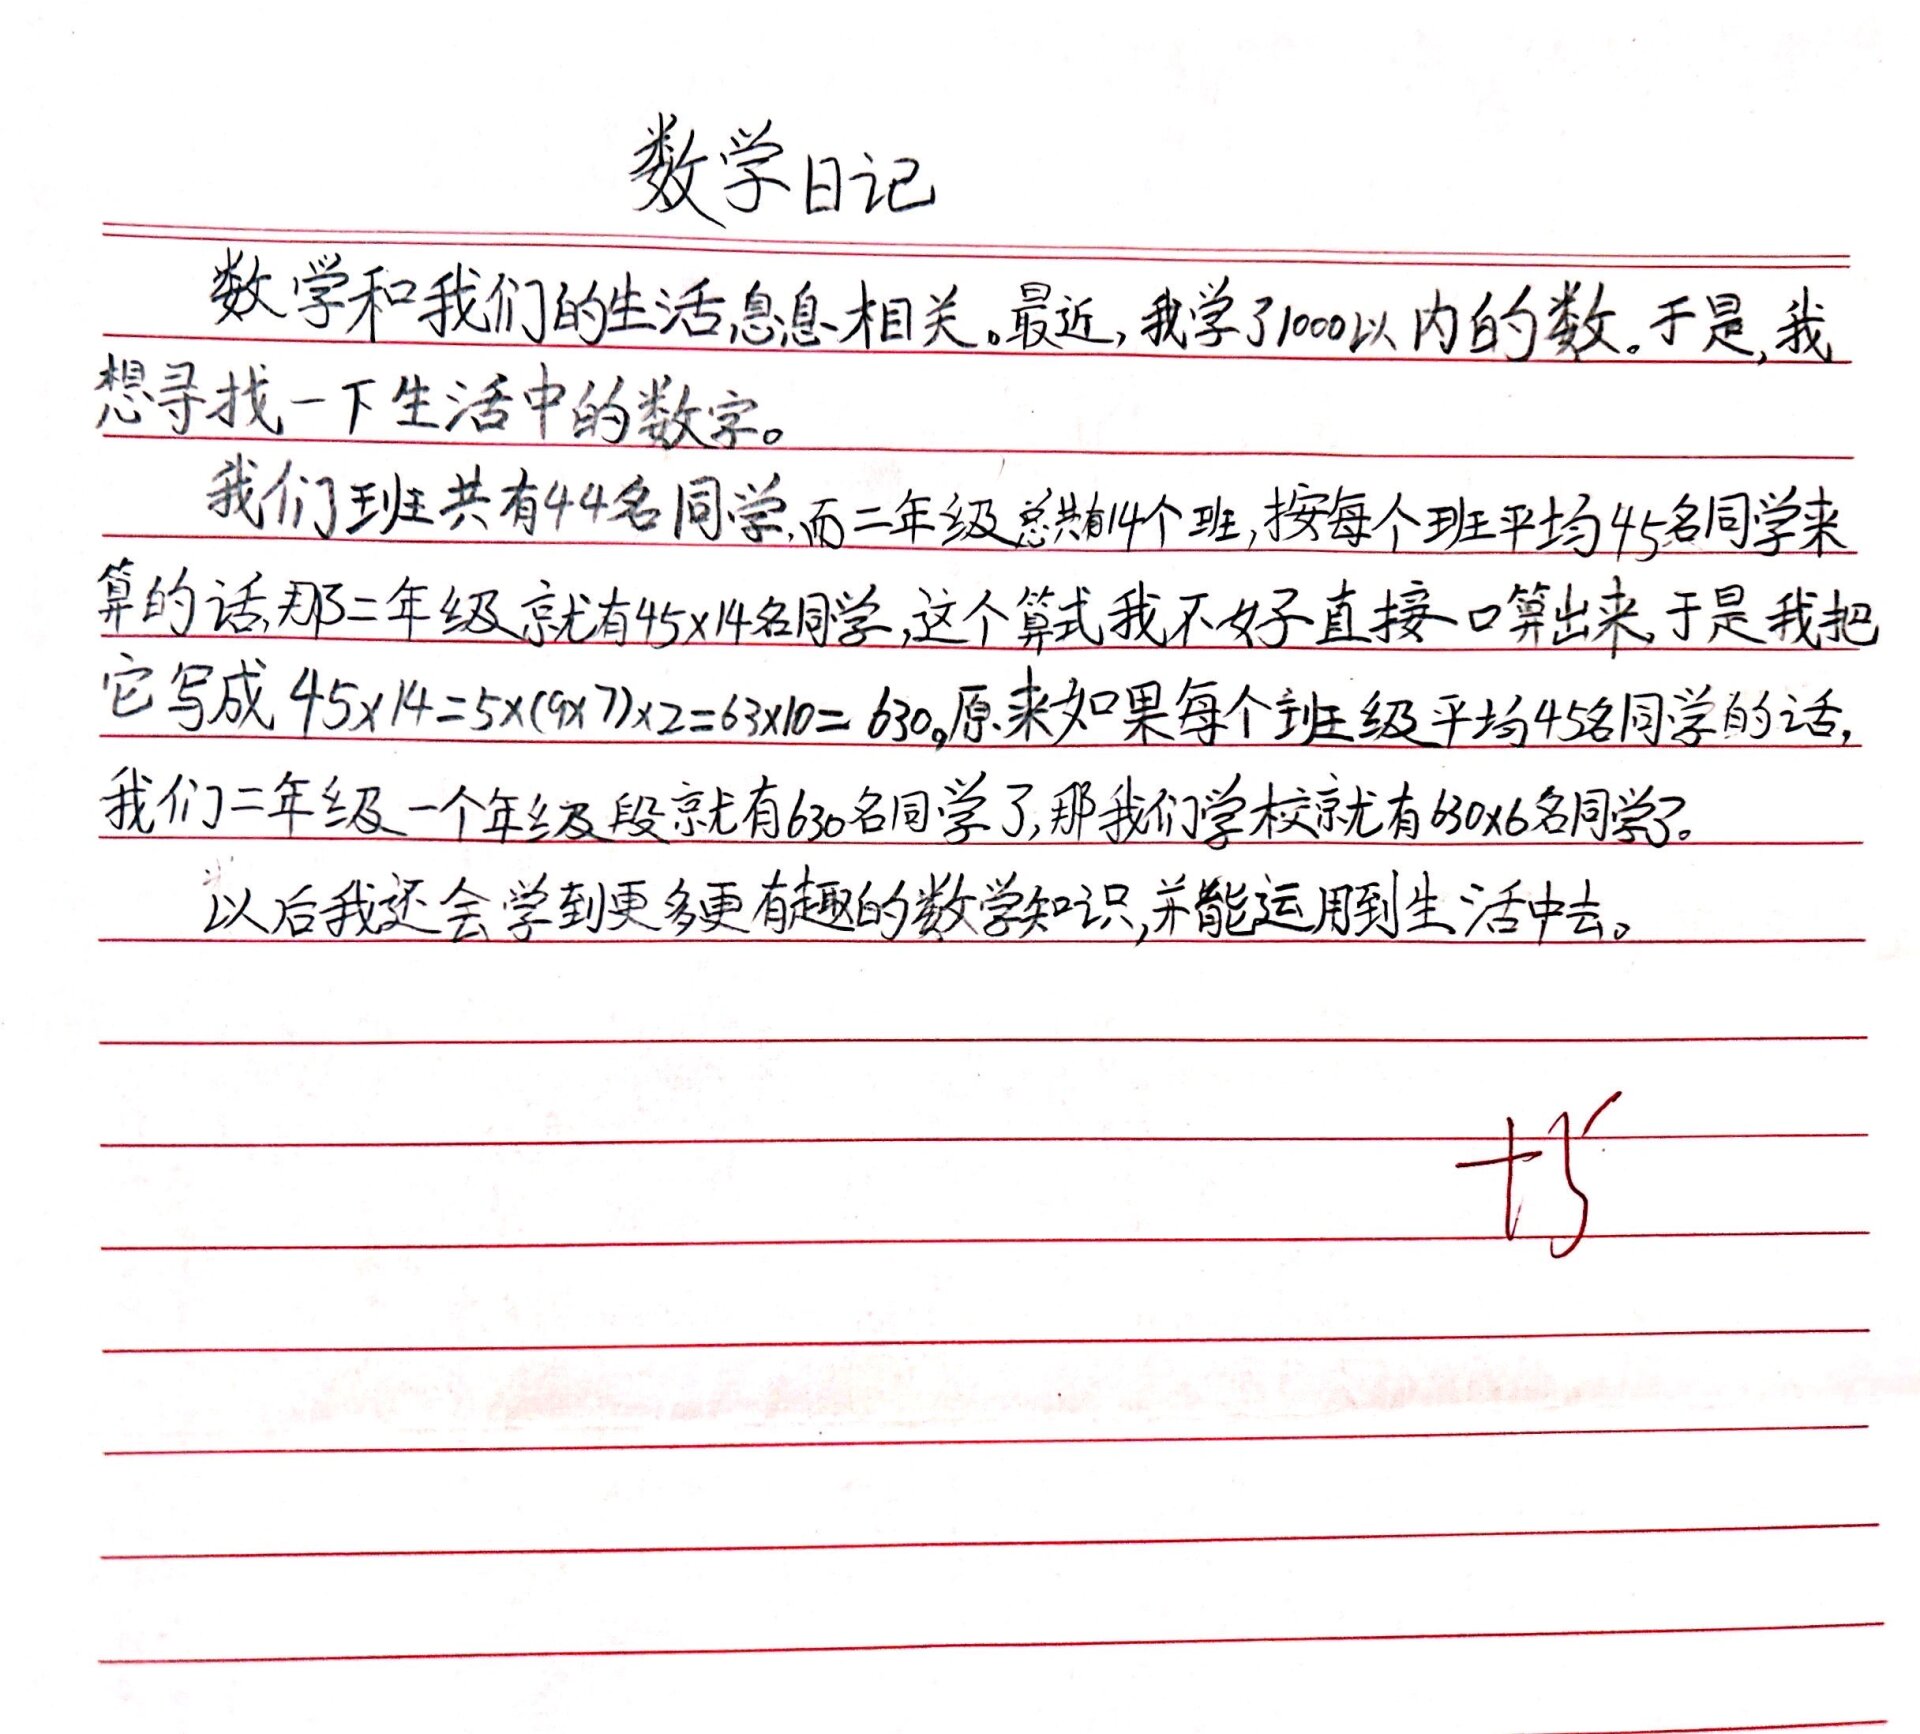 数学日记
数学和我们的生活息息相关。最近,我学了1000以内的数。于是,我
想寻找一下生活中的数字。
我们班共有44名同学,而二年级总共有14个班,按每个班平均45名同学来
算的话,那二年级就有45×14名同学,这个算式我不好直接口算出来,于是我把
它写成45×14=5×(9×7)×2=63×10=630。原来如果每个班级平均45名同学的话,
我们二年级一个年级段就有630名同学了,那我们学校就有630×6名同学了。
以后我还会学到更多更有趣的数学知识,并能运用到生活中去。
+5